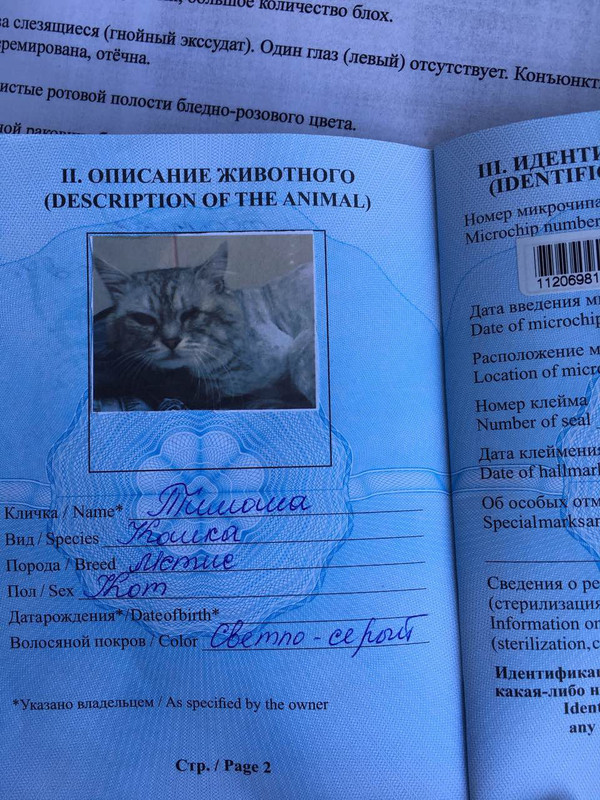 большое количество блох.
ва слезящиеся (гнойный экссудат). Один глаз (левый) отсутствует. Конъюнкт
еремирована, отёчна.
истые ротовой полости бледно-розового цвета.
ной
II. ОПИСАНИЕ ЖИВОТНОГО
(DESCRIPTION OF THE ANIMAL)
Кличка / Name* Тимоша
Вид / Species Кошка
Порода / Breed Метис
Пол / Sex Кот
Датарождения*/Dateofbirth*
Волосяной покров / Color Светло-серый
*Указано владельцем / As specified by the owner
Стр. / Page 2
III. ИДЕНТИ
(IDENTIFIC
Номер микрочипа
Microchip number
11206981
Дата введения ми
Date of microchip
Расположение м
Location of micro
Номер клейма
Number of seal
Дата клеймения
Date of hallmark
Об особых отм
Specialmarksan
Сведения о ре
(стерилизация
Information on
(sterilization, c
Идентифика
какая-либо и
Ident
any